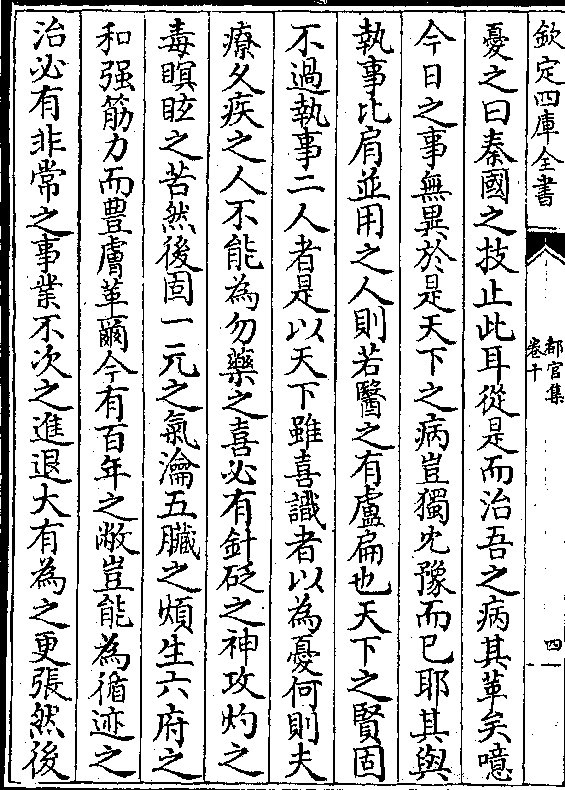 欽定四庫全書
都官集
卷十
四
憂之曰秦國之技止此耳從是而治吾之病其革矣噫
今日之事無異於是天下之病豈獨尣豫而已耶其與
執事比肩並用之人則若醫之有盧扁也天下之賢固
不過執事二人者是以天下雖喜識者以為憂何則夫
療久疾之人不能為勿藥之喜必有針砭之神攻灼之
毒瞑眩之苦然後固一元之氣瀹五臟之煩生六府之
和强筋力而豊膚革爾今有百年之敝豈能為循迹之
治必有非常之事業不次之進退大有為之更張然後